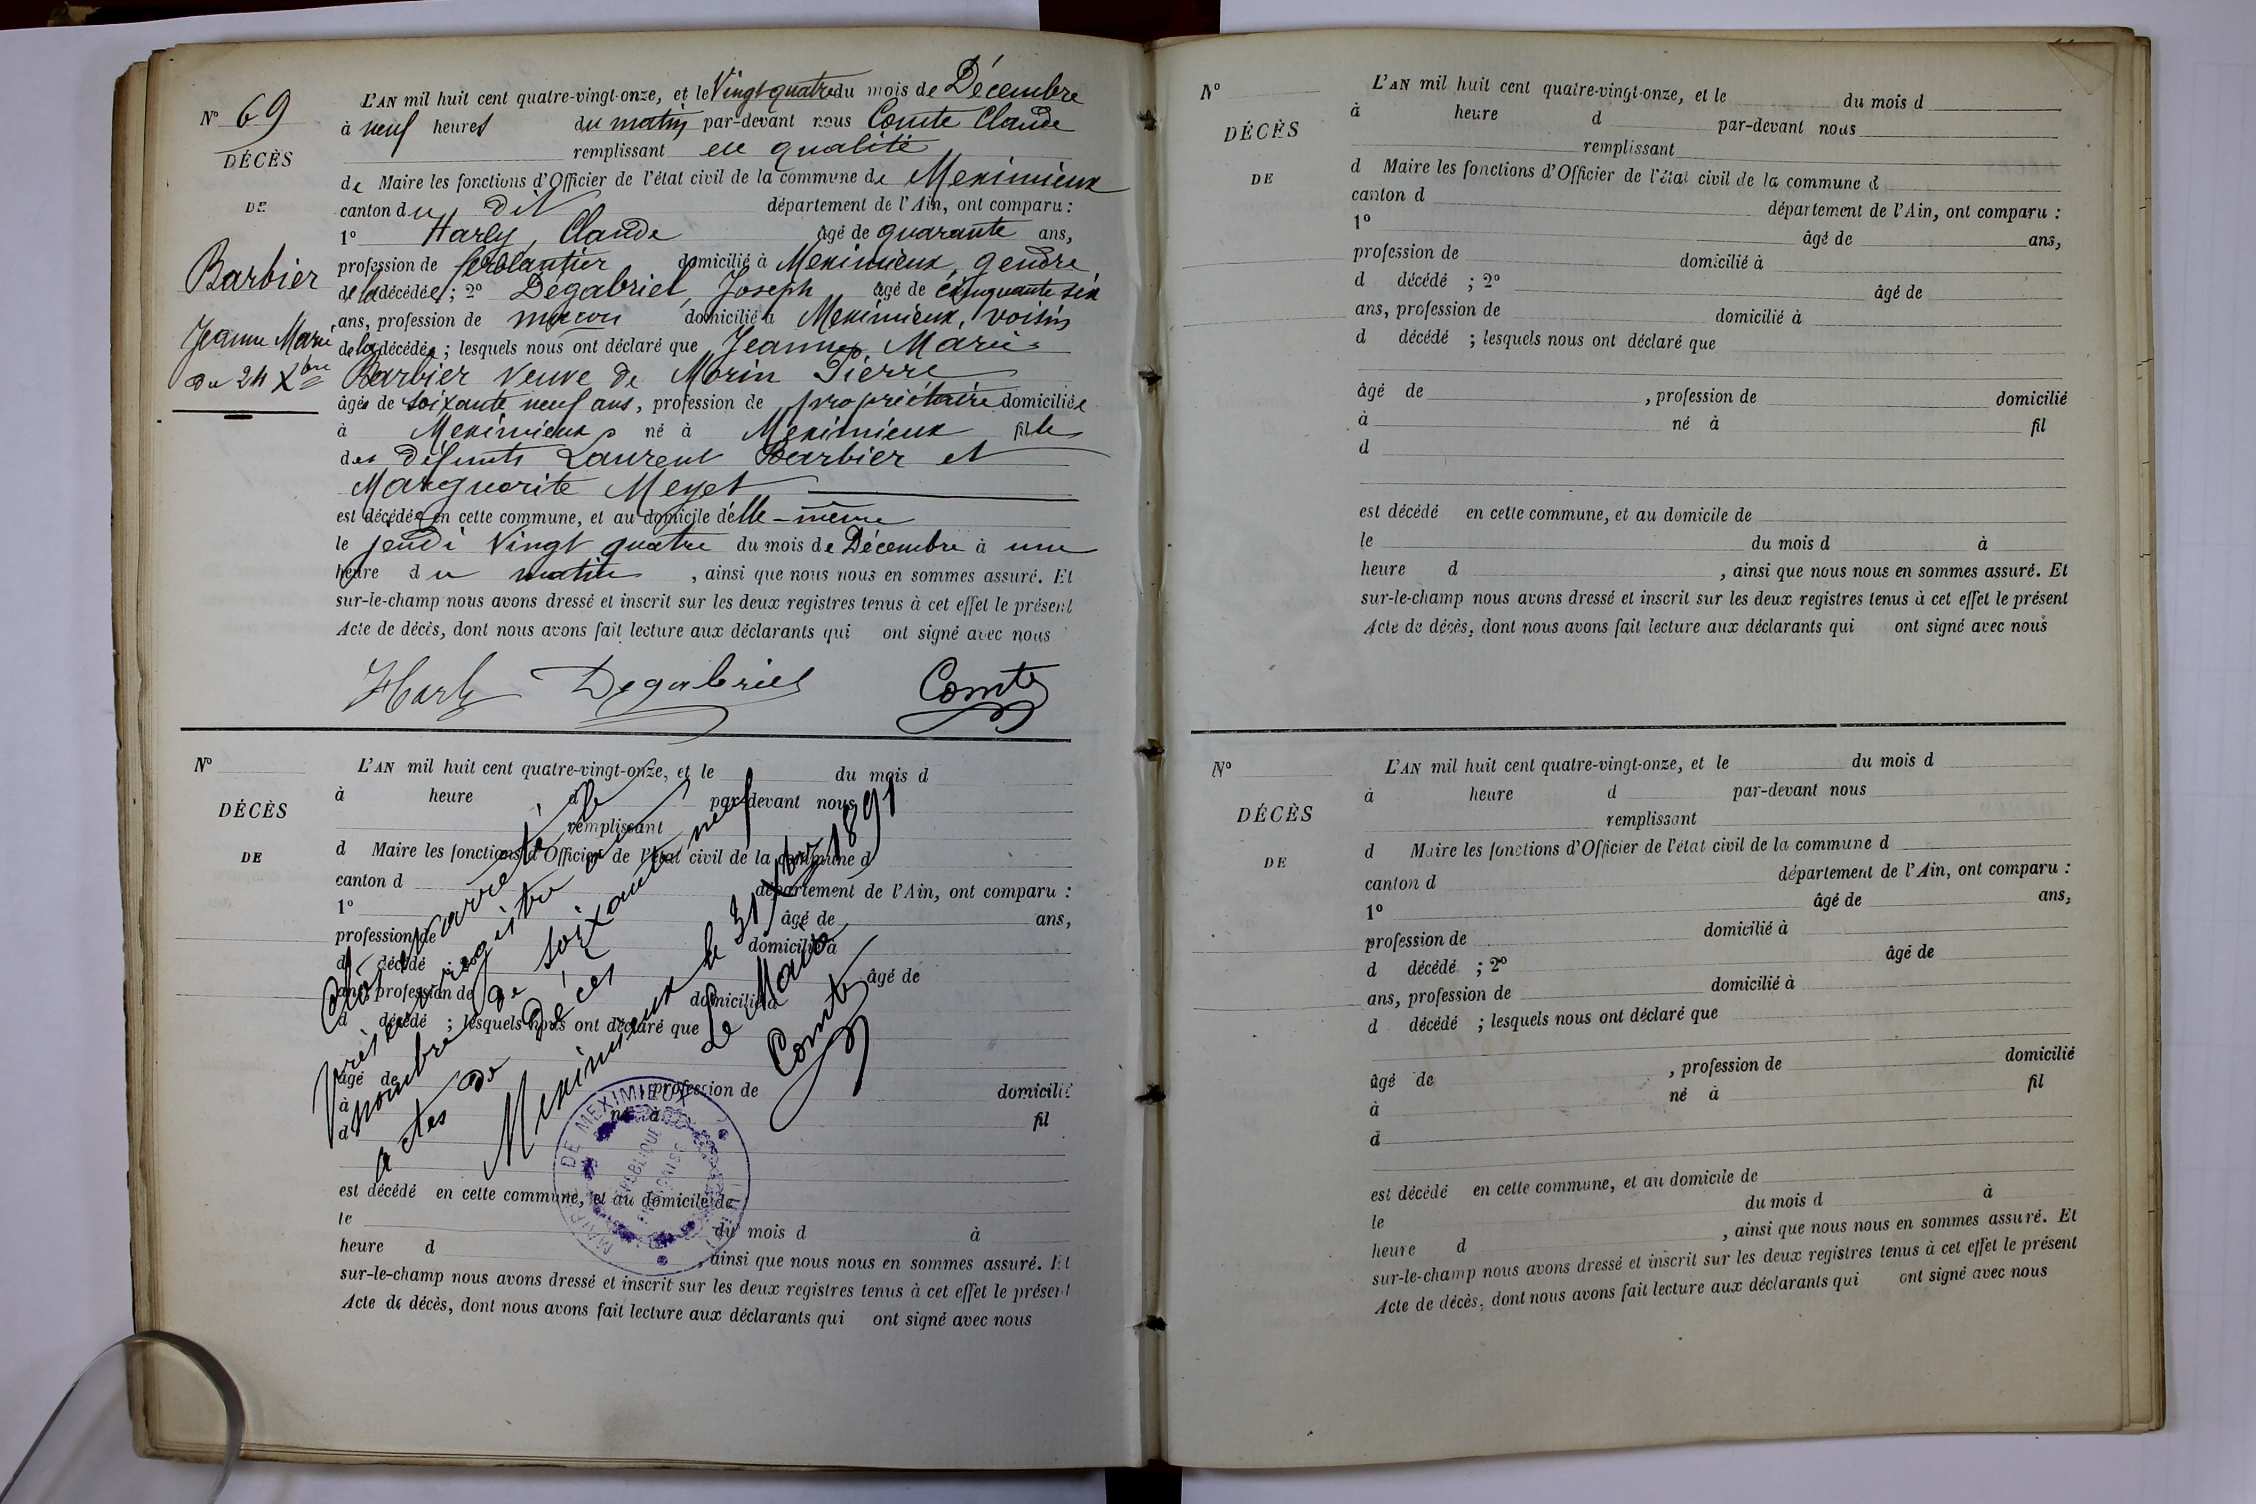 N° 69
DÉCÈS
DE
Barbier
Jeanne Marie
du 24 Xbre
L'AN mil huit cent quatre-vingt-onze, et le Vingt quatre du mois de Décembre
à neuf heures du matin par-devant nous Comte Claude
remplissant en qualité
de Maire les fonctions d'Officier de l'état civil de la commune de Meximieux
canton du dit département de l'Ain, ont comparu :
1° Harly, Claude âgé de quarante ans,
profession de ferblantier domicilié à Meximieux, gendre
de la décédée ; 2° Degabriel, Joseph âgé de cinquante six
ans, profession de maçon domicilié à Meximieux, voisin
de la décédée ; lesquels nous ont déclaré que Jeanne, Marie
Barbier Veuve de Morin Pierre
âgée de soixante neuf ans, profession de propriétaire domiciliée
à Meximieux né à Meximieux fille
des défunts Laurent Barbier et
Marguerite Meyet
est décédée en cette commune, et au domicile d'elle-même
le jeudi Vingt quatre du mois de Décembre à une
heure du matin , ainsi que nous nous en sommes assuré. Et
sur-le-champ nous avons dressé et inscrit sur les deux registres tenus à cet effet le présent
Acte de décès, dont nous avons fait lecture aux déclarants qui ont signé avec nous
Harly Degabriel Comte
N°
DÉCÈS
DE
L'AN mil huit cent quatre-vingt-onze, et le du mois d
à heure d par-devant nous
remplissant
d Maire les fonctions d'Officier de l'état civil de la commune d
canton d département de l'Ain, ont comparu :
1° âgé de ans,
profession de domicilié à
d décédé ; 2° âgé de
ans, profession de domicilié à
d décédé ; lesquels nous ont déclaré que
âgé de , profession de domicilié
à né à fil
d
est décédé en cette commune, et au domicile de
le du mois d à
heure d , ainsi que nous nous en sommes assuré. Et
sur-le-champ nous avons dressé et inscrit sur les deux registres tenus à cet effet le présent
Acte de décès, dont nous avons fait lecture aux déclarants qui ont signé avec nous
Clos et arrêté le
présent registre au
nombre de soixante neuf
actes de Décès
Meximieux le 31 Xbre 1891
Le Maire
Comte
MAIRIE DE MEXIMIEUX
RÉPUBLIQUE
FRANÇAISE
N°
DÉCÈS
DE
L'AN mil huit cent quatre-vingt-onze, et le du mois d
à heure d par-devant nous
remplissant
d Maire les fonctions d'Officier de l'état civil de la commune d
canton d département de l'Ain, ont comparu :
1° âgé de ans,
profession de domicilié à
d décédé ; 2° âgé de
ans, profession de domicilié à
d décédé ; lesquels nous ont déclaré que
âgé de , profession de domicilié
à né à fil
d
est décédé en cette commune, et au domicile de
le du mois d à
heure d , ainsi que nous nous en sommes assuré. Et
sur-le-champ nous avons dressé et inscrit sur les deux registres tenus à cet effet le présent
Acte de décès, dont nous avons fait lecture aux déclarants qui ont signé avec nous
N°
DÉCÈS
DE
L'AN mil huit cent quatre-vingt-onze, et le du mois d
à heure d par-devant nous
remplissant
d Maire les fonctions d'Officier de l'état civil de la commune d
canton d département de l'Ain, ont comparu :
1° âgé de ans,
profession de domicilié à
d décédé ; 2° âgé de
ans, profession de domicilié à
d décédé ; lesquels nous ont déclaré que
âgé de , profession de domicilié
à né à fil
d
est décédé en cette commune, et au domicile de
le du mois d à
heure d , ainsi que nous nous en sommes assuré. Et
sur-le-champ nous avons dressé et inscrit sur les deux registres tenus à cet effet le présent
Acte de décès, dont nous avons fait lecture aux déclarants qui ont signé avec nous